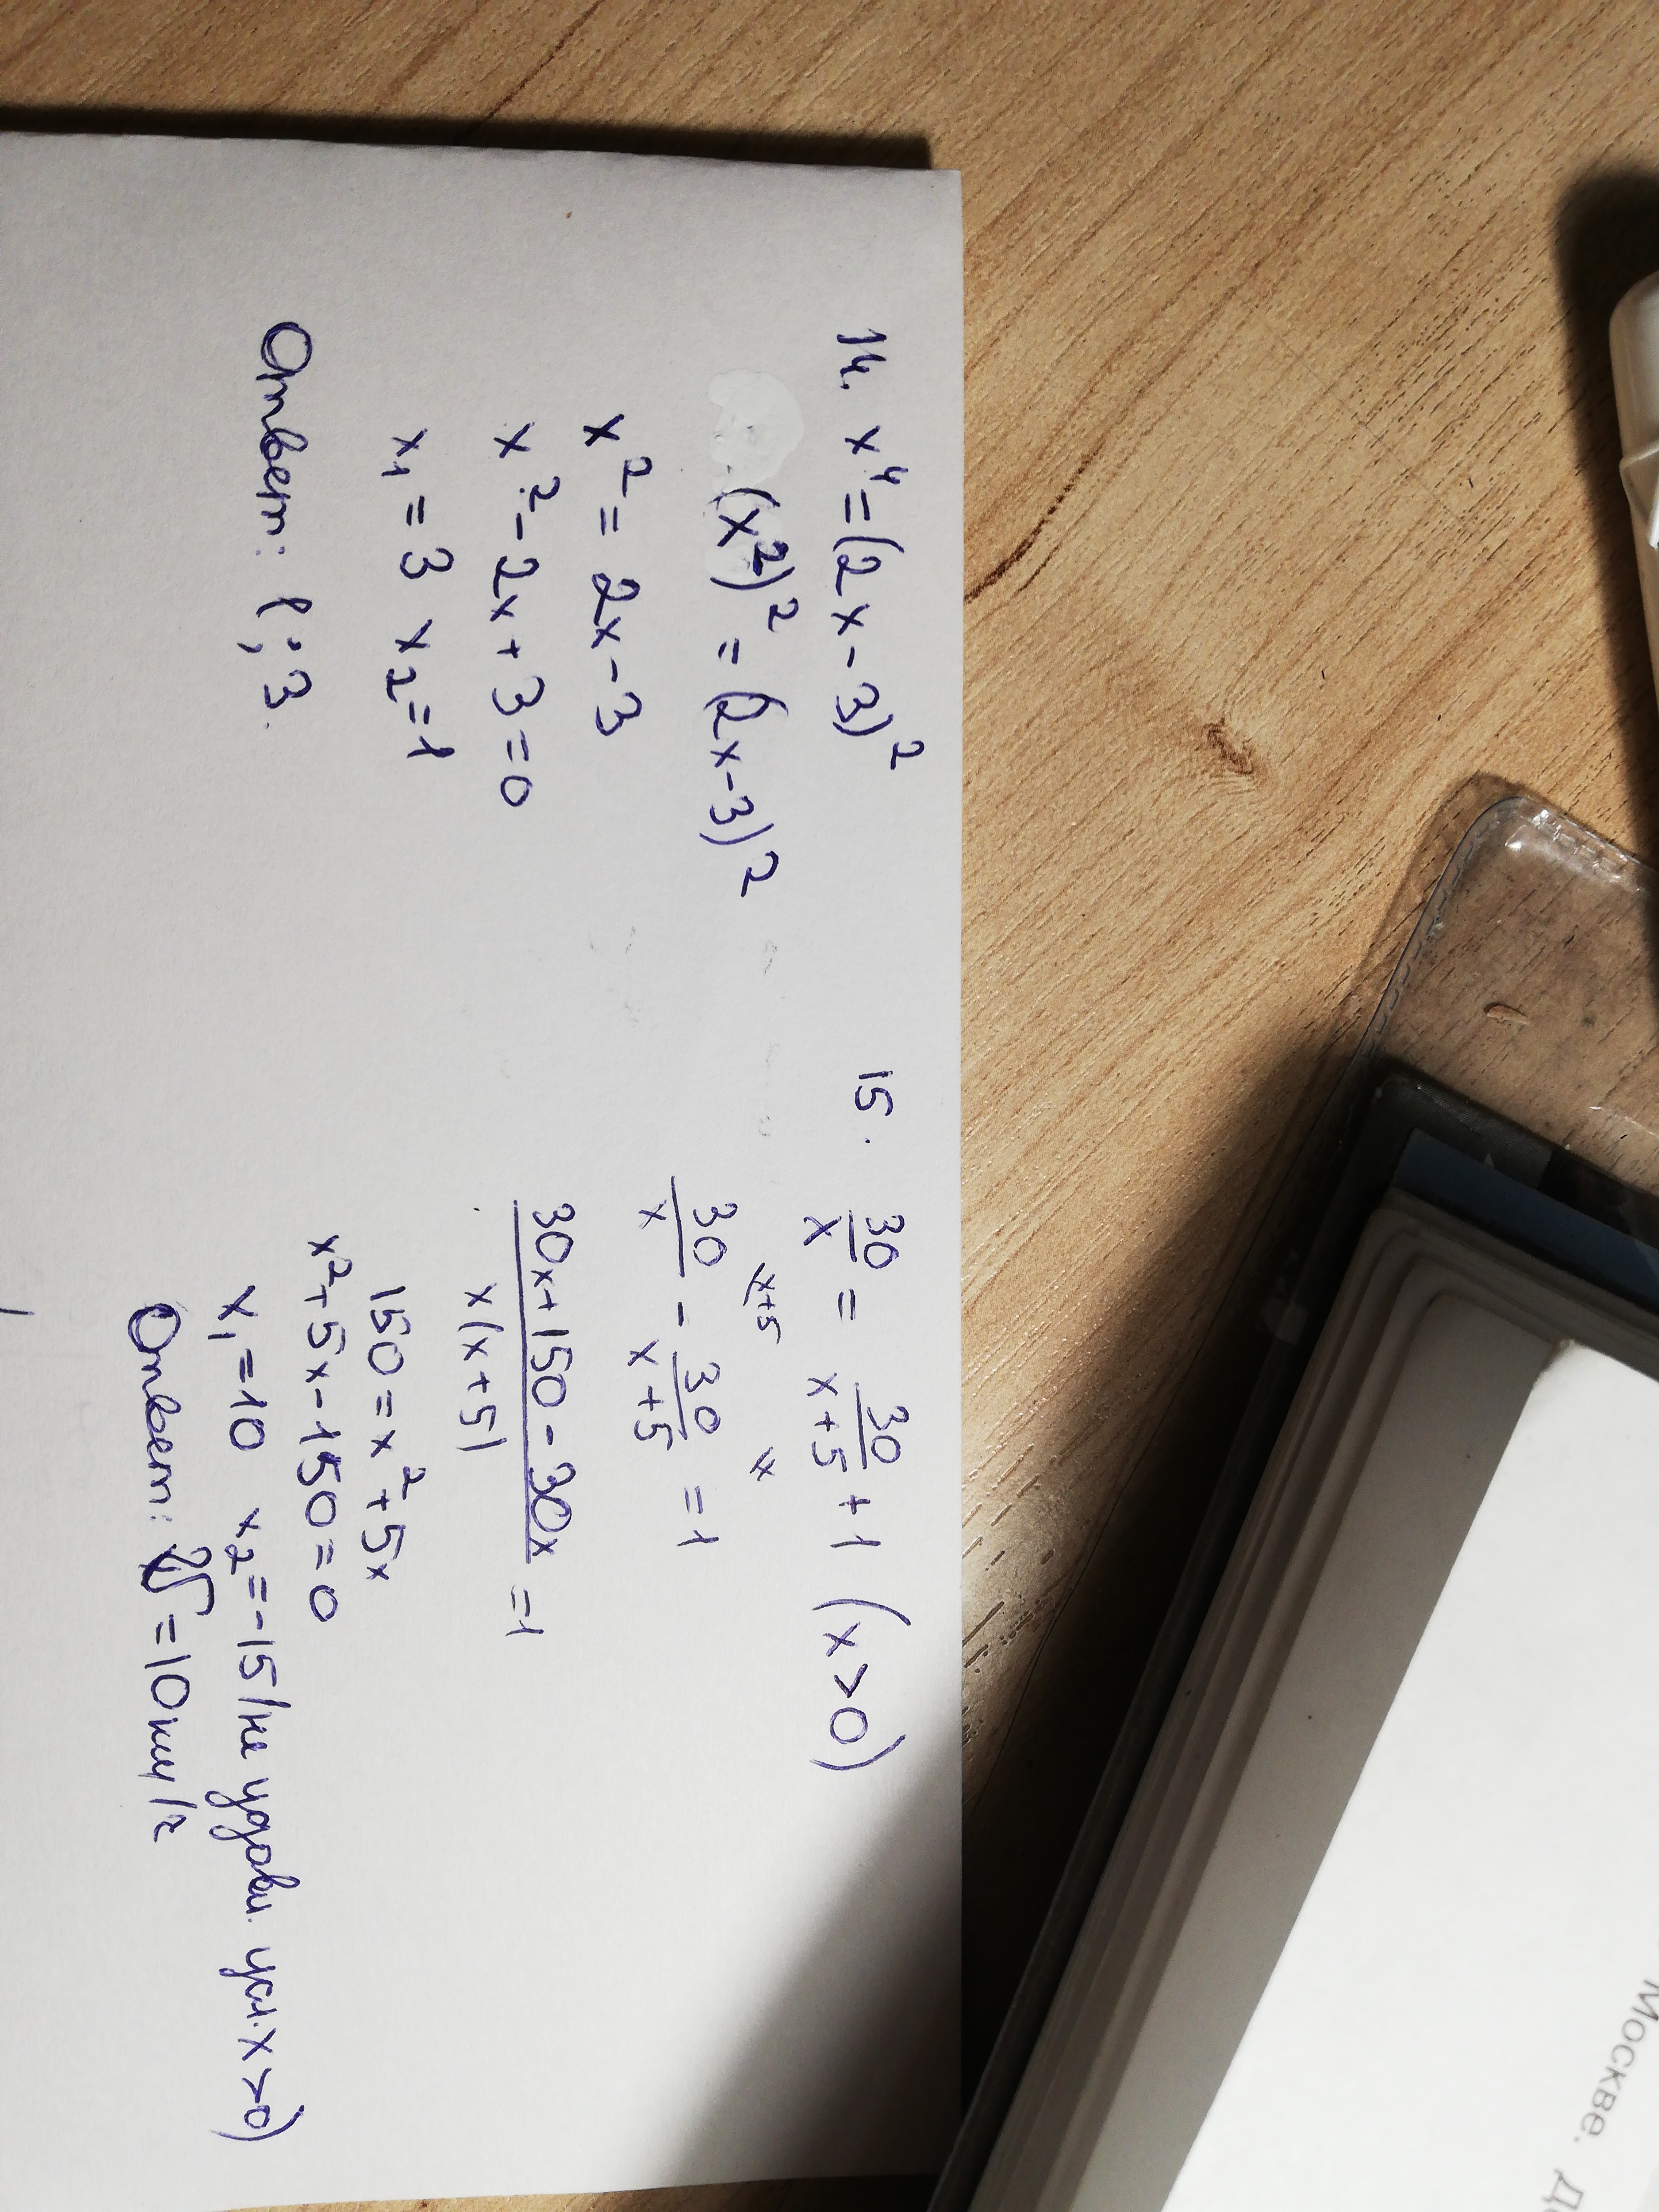 14. x⁴=(2x-3)²
(x²)²=(2x-3)²
x²=2x-3
x²-2x+3=0
x₁=3 x₂=1
Ответ: 1;3.
15. 30/x = 30/(x+5) + 1 (x>0)
x+5 x
30/x - 30/(x+5) = 1
(30x+150-30x)/(x(x+5)) = 1
150=x²+5x
x²+5x-150=0
x₁=10 x₂=-15(не удовл. усл. x>0)
Ответ: =10км/ч
Москве.